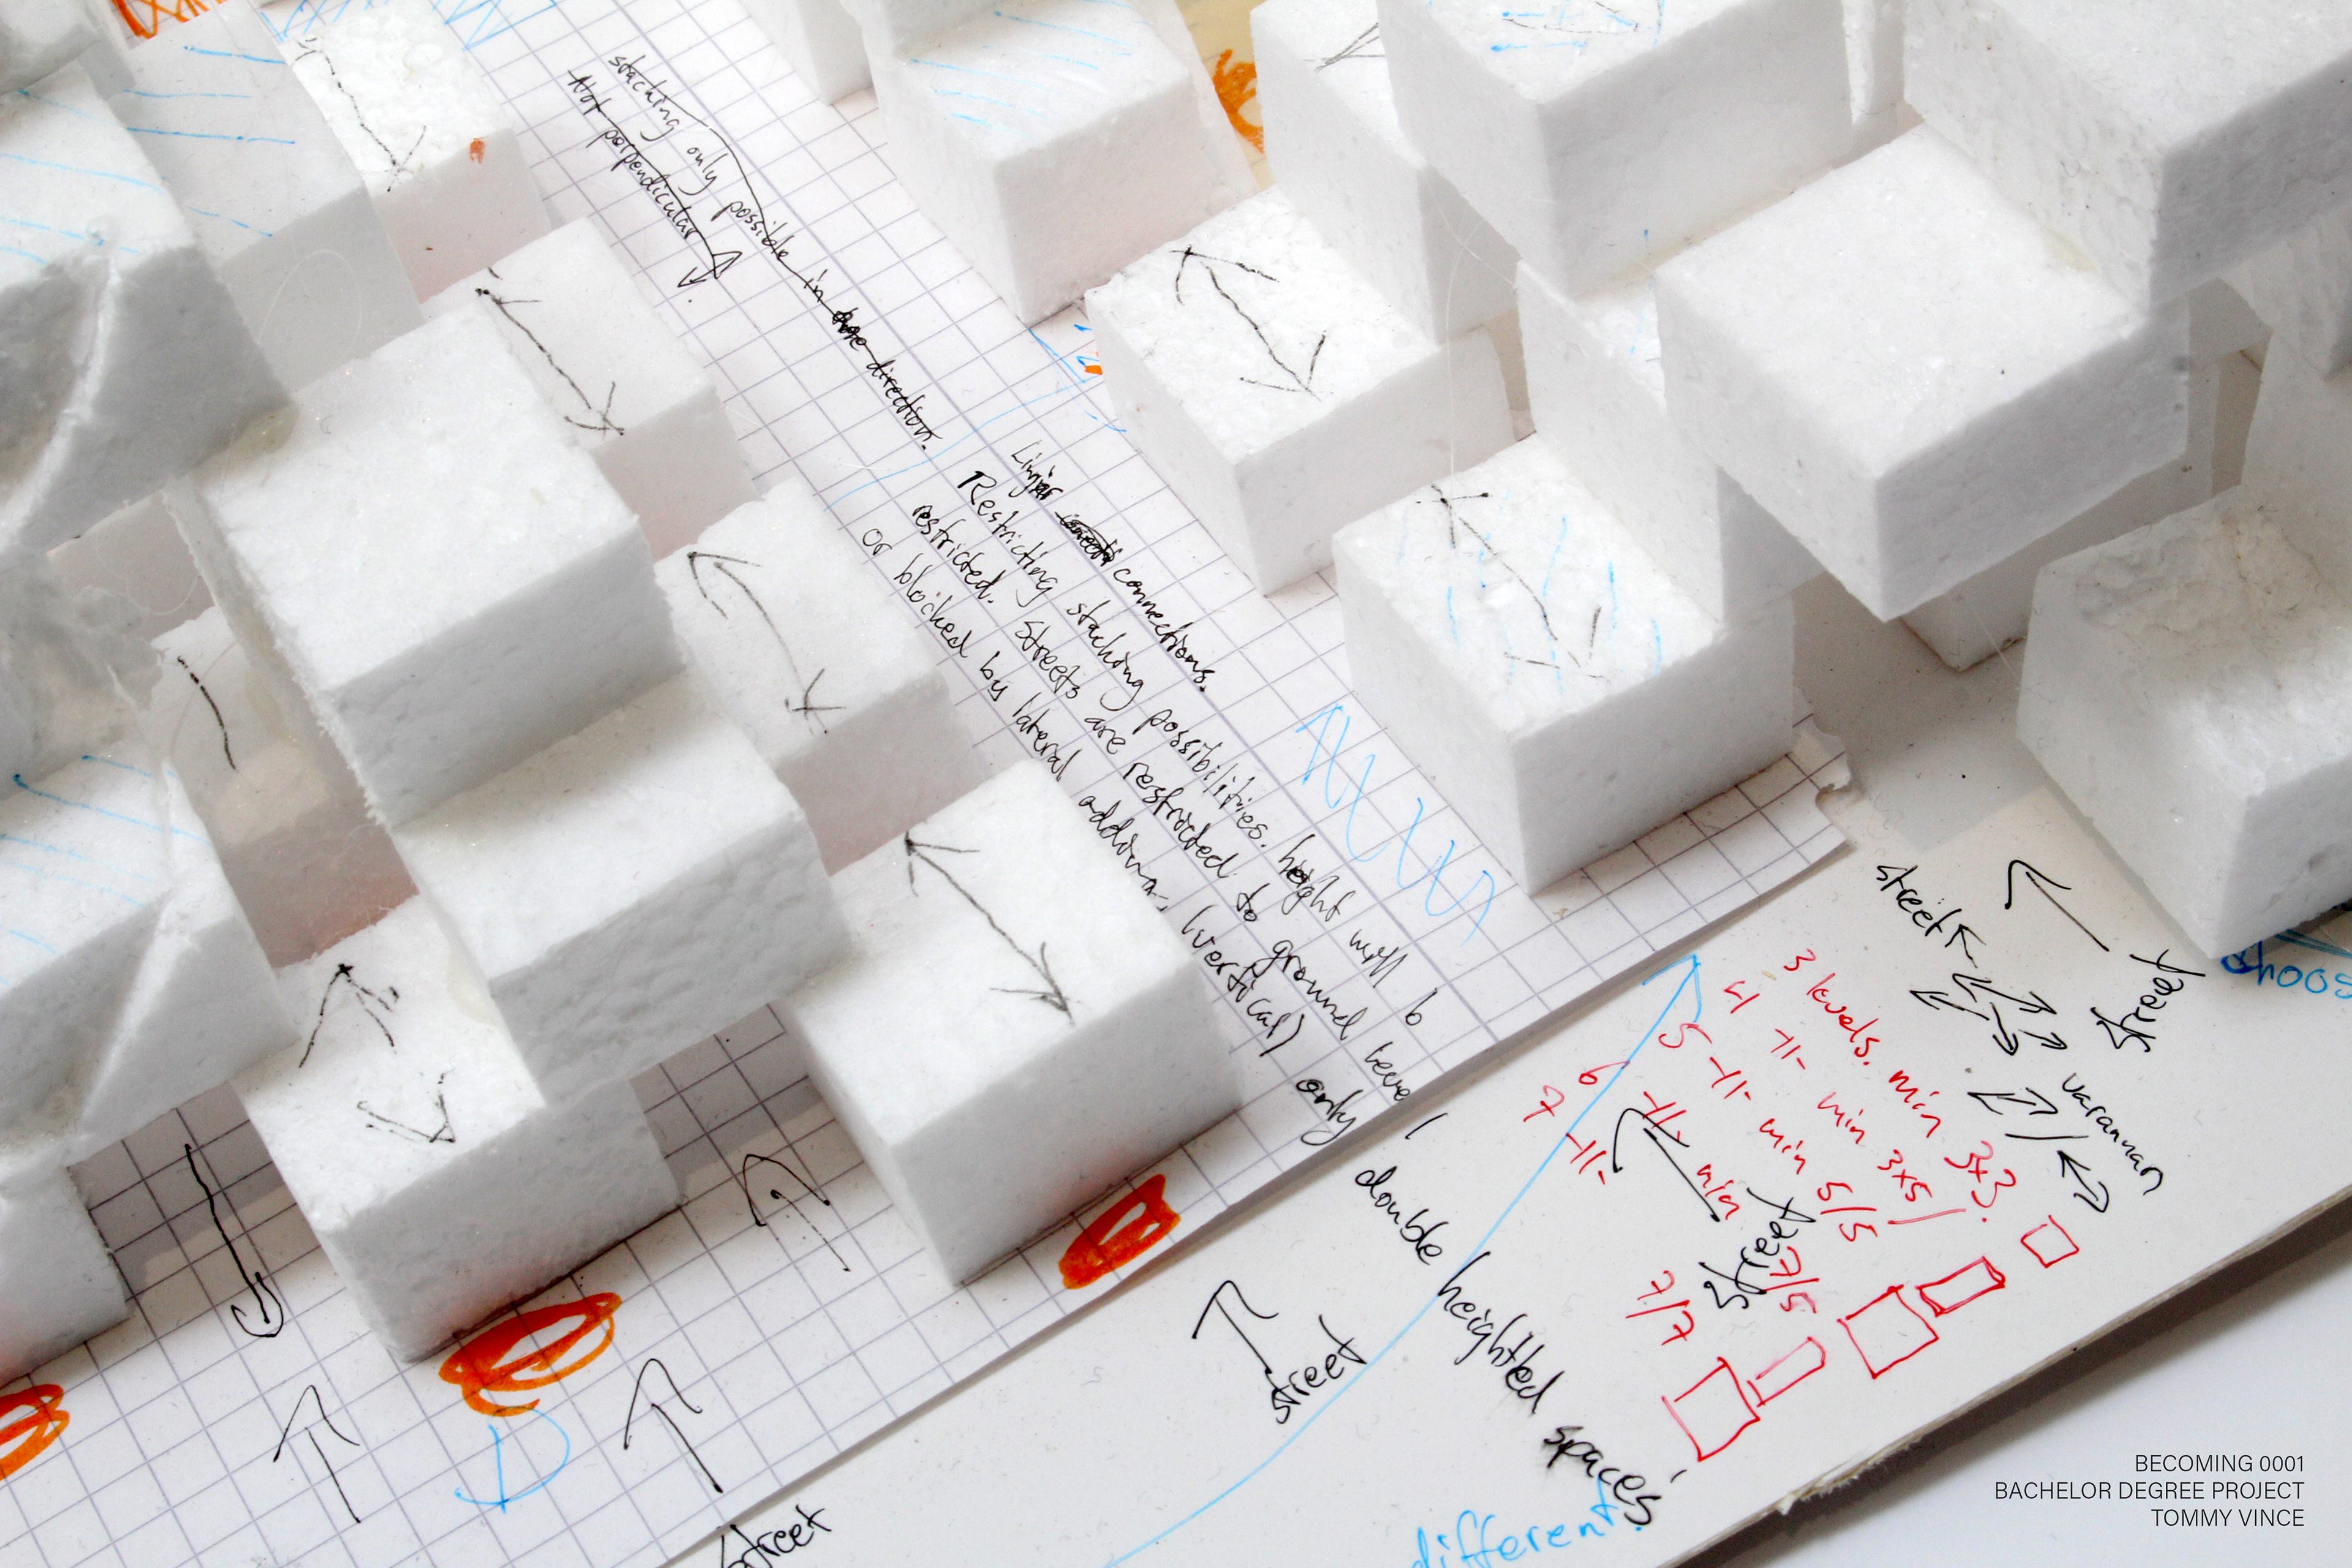 stacking only possible in one direction.
Not perpendicular
Linjär connections.
Restricting stacking possibilities. height will b
restricted. Streets are restricted to ground level
or blocked by lateral adding (vertical) only
double heighted spaces
different.
street
street
street
street
street
varannan
choos
3 levels. min 3x3.
4 -11- min 3x5/
5 -11- min 5/5
6 -11- min 7/5
7 -11- 7/7
BECOMING 0001
BACHELOR DEGREE PROJECT
TOMMY VINCE